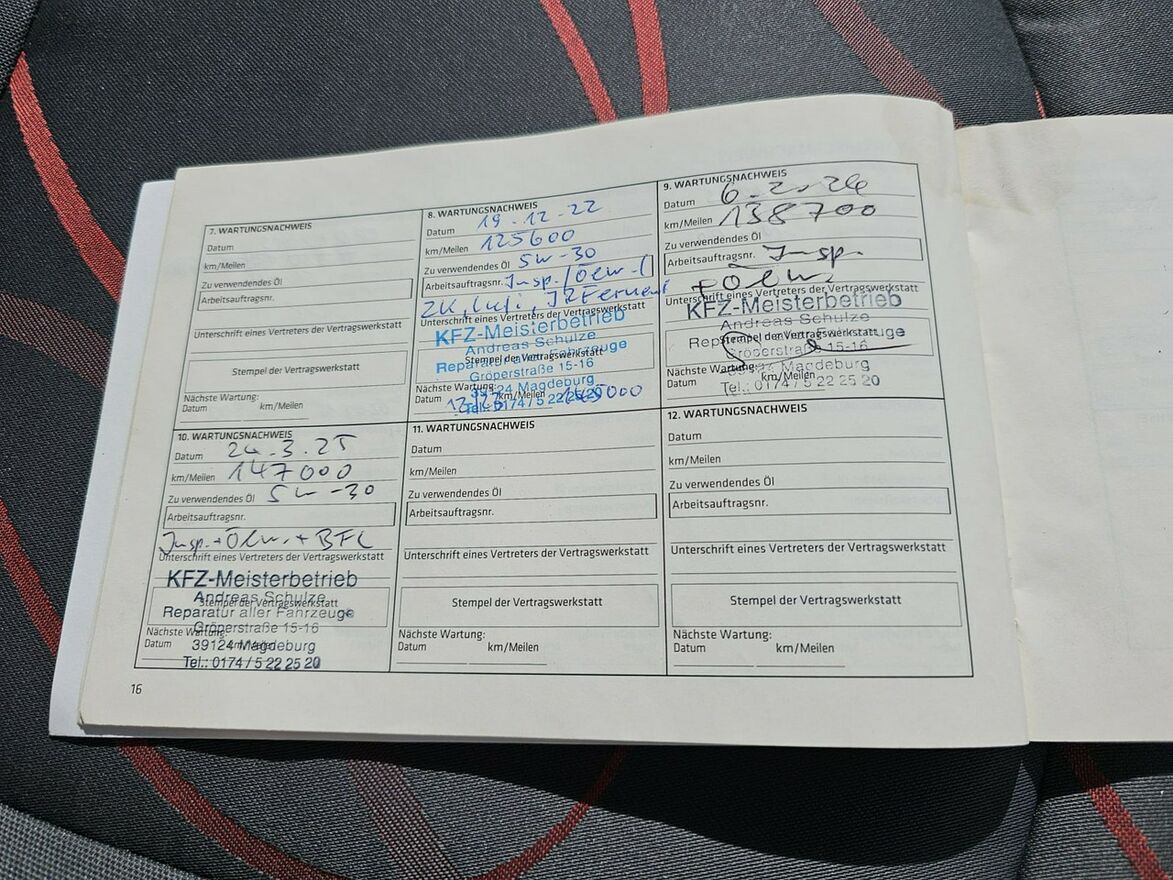 7. WARTUNGSNACHWEIS
Datum
km/Meilen
Zu verwendendes Öl
Arbeitsauftragsnr.
Unterschrift eines Vertreters der Vertragswerkstatt
Stempel der Vertragswerkstatt
Nächste Wartung:
Datum km/Meilen
8. WARTUNGSNACHWEIS
Datum 19.12.22
km/Meilen 125600
Zu verwendendes Öl 5W-30
Arbeitsauftragsnr. Insp./Ölw.
ZK, Lufi,
Unterschrift eines Vertreters der Vertragswerkstatt
KFZ-Meisterbetrieb
Andreas Schulze
Stempel der Vertragswerkstatt
Reparatur aller Fahrzeuge
Gröperstraße 15-16
Nächste Wartung:
39124 Magdeburg
Datum km/Meilen
Tel.: 0174 / 5 22 25 20
9. WARTUNGSNACHWEIS
Datum 6.2.24
km/Meilen 138700
Zu verwendendes Öl
Arbeitsauftragsnr. Insp.
+ Ölw.
Unterschrift eines Vertreters der Vertragswerkstatt
KFZ-Meisterbetrieb
Andreas Schulze
Stempel der Vertragswerkstatt
Reparatur aller Fahrzeuge
Gröperstraße 15-16
Nächste Wartung:
39124 Magdeburg
Datum km/Meilen
Tel.: 0174 / 5 22 25 20
10. WARTUNGSNACHWEIS
Datum 24.3.25
km/Meilen 147000
Zu verwendendes Öl 5W-30
Arbeitsauftragsnr.
Insp. + Ölw. + BFL
Unterschrift eines Vertreters der Vertragswerkstatt
KFZ-Meisterbetrieb
Andreas Schulze
Stempel der Vertragswerkstatt
Reparatur aller Fahrzeuge
Gröperstraße 15-16
Nächste Wartung:
39124 Magdeburg
Datum km/Meilen
Tel.: 0174 / 5 22 25 20
11. WARTUNGSNACHWEIS
Datum
km/Meilen
Zu verwendendes Öl
Arbeitsauftragsnr.
Unterschrift eines Vertreters der Vertragswerkstatt
Stempel der Vertragswerkstatt
Nächste Wartung:
Datum km/Meilen
12. WARTUNGSNACHWEIS
Datum
km/Meilen
Zu verwendendes Öl
Arbeitsauftragsnr.
Unterschrift eines Vertreters der Vertragswerkstatt
Stempel der Vertragswerkstatt
Nächste Wartung:
Datum km/Meilen
16